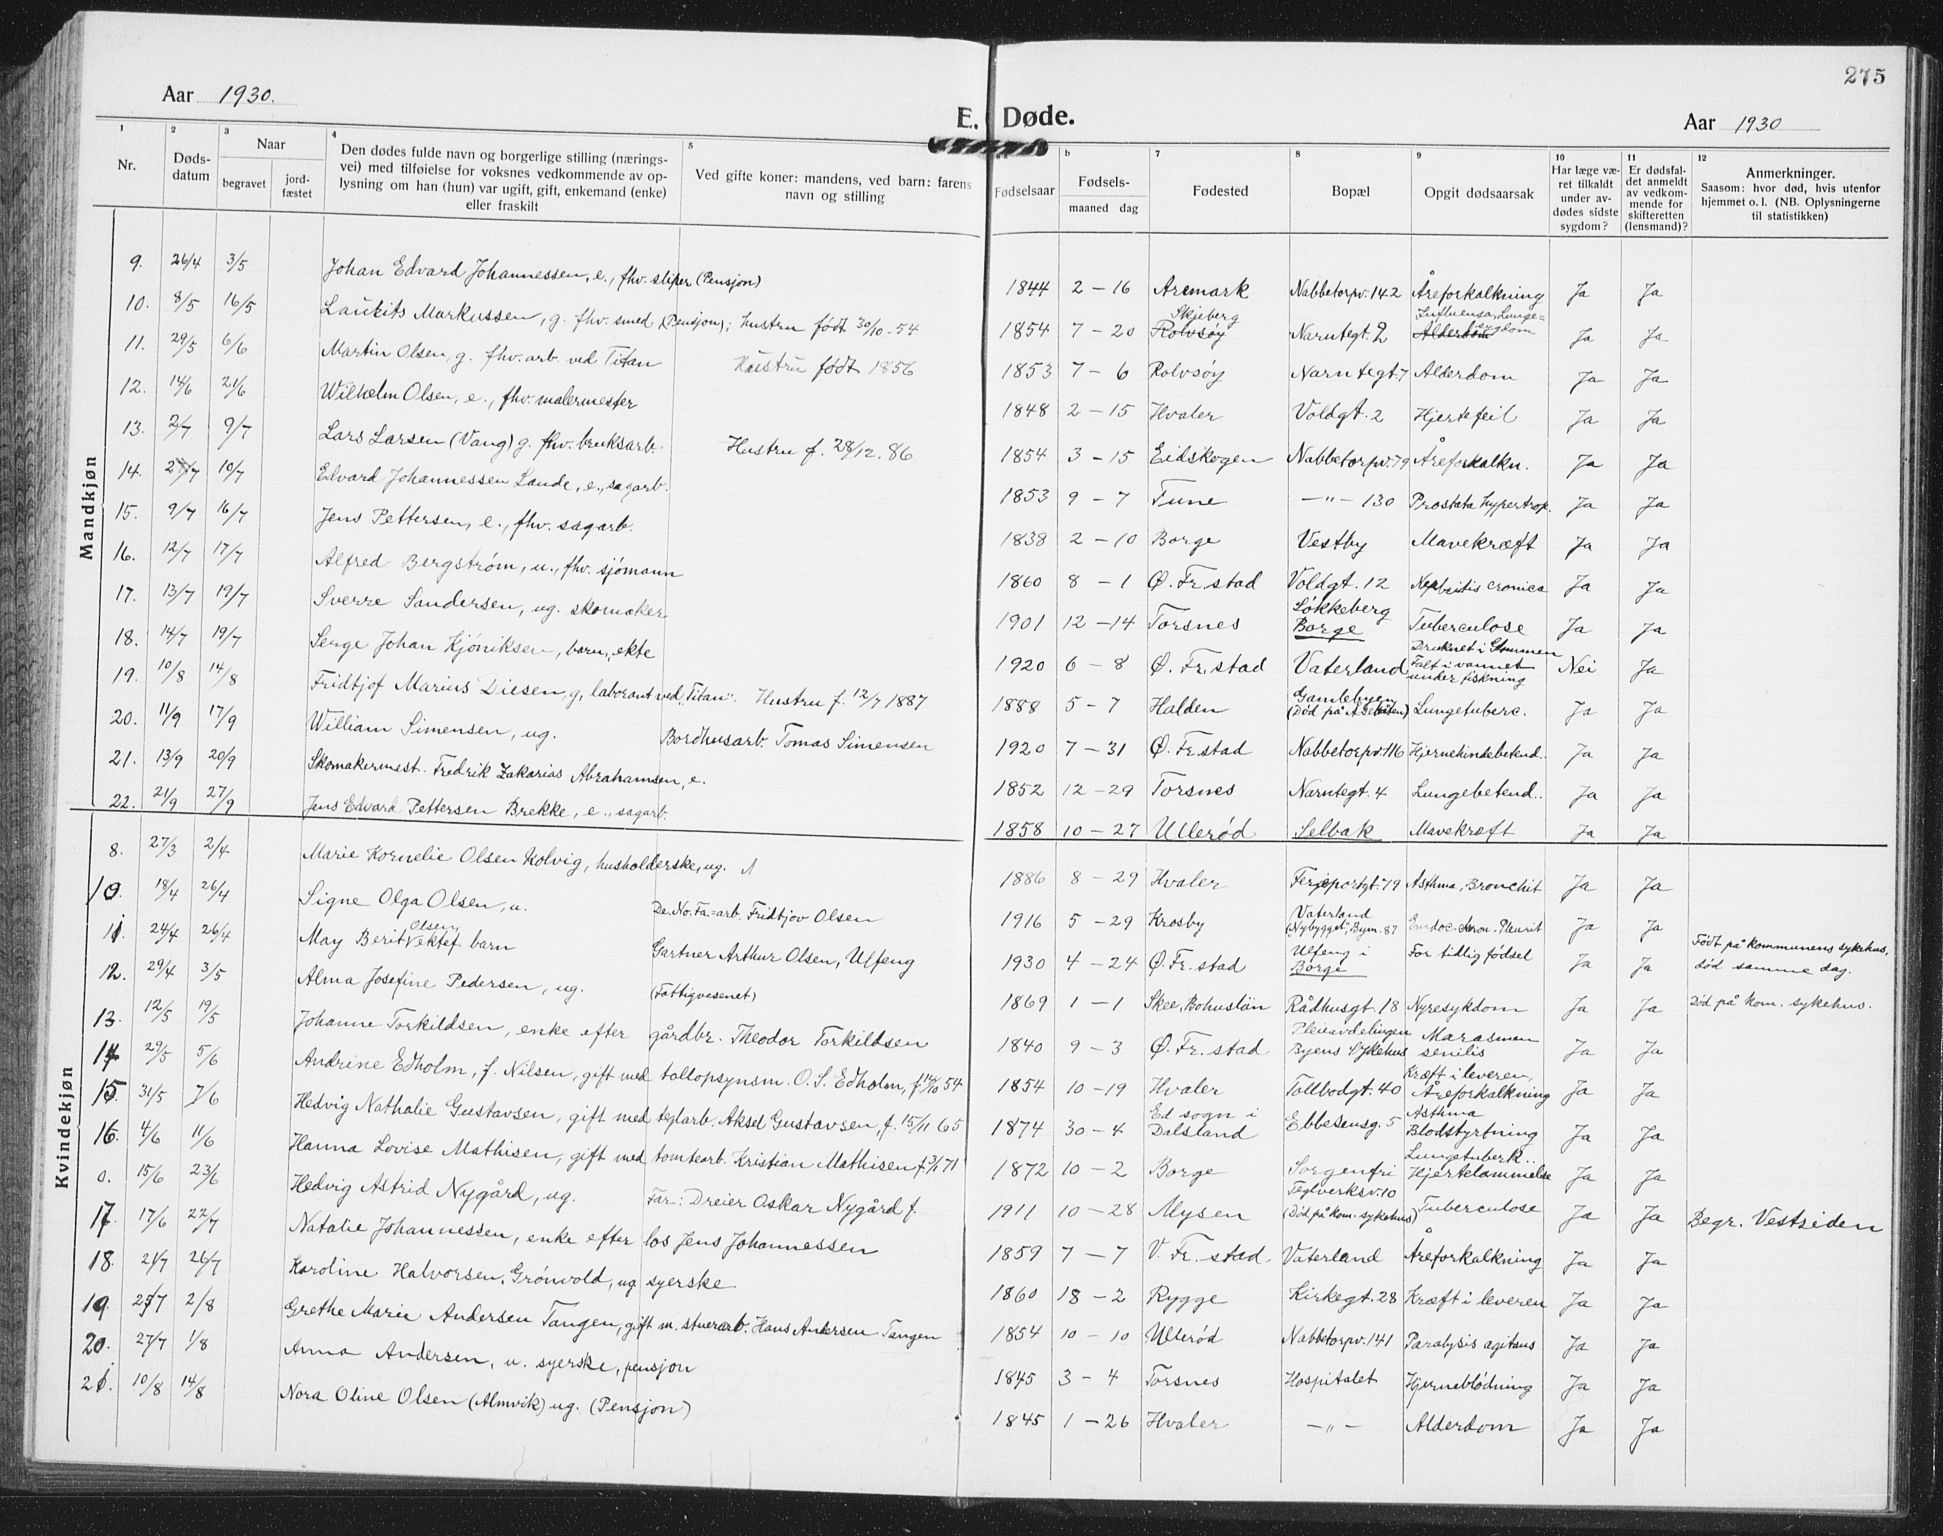 275
Aar 1930.
E. Døde.
Aar 1930
1 Nr.
2 Døds-datum
3 Naar
begravet
jord-fæstet
4 Den dødes fulde navn og borgerlige stilling (nærings-
vei) med tilføielse for voksnes vedkommende av op-
lysning om han (hun) var ugift, gift, enkemand (enke)
eller fraskilt
5 Ved gifte koner: mandens, ved barn: farens
navn og stilling
Fødselsaar
b Fødsels-
maaned dag
7 Fødested
8 Bopæl
9 Opgit dødsaarsak
10 Har læge væ-
ret tilkaldt
under av-
dødes sidste
sygdom?
11 Er dødsfal-
det anmeldt
av vedkom-
mende for
skifteretten
(lensmand)?
12 Anmerkninger.
Saasom: hvor død, hvis utenfor
hjemmet o. l. (NB. Oplysningerne
til statistikken)
Mandkjøn
9. 26/4 3/5 Johan Edvard Johannessen, e., fhv. sliper (Pensjon) 1844 2 – 16 Aremark Nabbetorpv. 142 Åreforkalkning Ja Ja
10. 8/5 16/5 Laurits Markussen, g. fhv. smed (Pensjon); hustru født 30/10-54 1854 7 – 20 Rolvsøy Skjeberg Narntegt. 2 Alderdom Influensa, Lunge-sygdom Ja Ja
11. 29/5 6/6 Martin Olsen, g. fhv. arb. ved Titan Hustru født 1856 1853 7 – 6 Rolvsøy Narntegt. 7 Alderdom Ja Ja
12. 14/6 21/6 Wilhelm Olsen, e., fhv. malermester 1848 2 – 15 Hvaler Voldgt. 2 Hjertefeil Ja Ja
13. 2/7 9/7 Lars Larsen (Vang) g. fhv. bruksarb. Hustru f. 28/12. 86 1854 3 – 15 Eidskogen Nabbetorpv. 79 Åreforkalkn. Ja Ja
14. 2/7 10/7 Edvard Johannessen Lande, e., sagarb. 1853 9 – 7 Tune – " – 130 Prostata hypertrop. Ja Ja
15. 9/7 16/7 Jens Pettersen, e., fhv. sagarb. 1838 2 – 10 Borge Vestby Mavekræft Ja Ja
16. 12/7 17/7 Alfred Bergstrøm, u., fhv. sjömann 1860 8 – 1 Ø. Fr. stad Voldgt. 12 Nephritis cronica Ja Ja
17. 13/7 19/7 Sverre Sandersen, ug. skomaker 1901 12 – 14 Torsnes Løkkeberg Borge Tuberculose Ja Ja
18. 14/7 19/7 Senge Johan Kjöniksen, barn, ekte 1920 6 – 8 Ø. Fr. stad Vaterland Druknet i Glommen Falt i vannet under fiskning Nei Ja
19. 10/8 14/8 Fridtjof Marius Diesen, g, laborant ved "Titan". Hustru f. 12/7 1887 1888 5 – 7 Halden Gamlebyen (Død på) Lungetuberc. Ja Ja
20. 11/9 17/9 William Simensen, ug. Bordhusarb. Tomas Simensen 1920 7 – 31 Ø. Fr. stad Nabbetorpv. 116 Hjernehindebetend.. Ja Ja
21. 13/9 20/9 Skomakermest. Fredrik Zakarias Abrahamsen, e. 1852 12 – 29 Torsnes Narntegt. 4 Lungebetend.. Ja Ja
22. 21/9 27/9 Jens Edvard Pettersen Brekke, e., sagarb. 1858 10 – 27 Ullerød Selbak Mavekræft Ja Ja
Kvindekjøn
8. 27/3 2/4 Marie Kornelie Olsen Kolvig, husholderske, ug. 1886 8 – 29 Hvaler Ferjeportgt. 79 Asthma, Bronchit Ja Ja
10. 18/4 26/4 Signe Olga Olsen, u. De. No. Fa.=arb. Fridtjov Olsen 1916 5 – 29 Krosby Vaterland (Nybygget", Bym. 87 Endoc. chron. Pleurit Ja Ja
11. 24/4 26/4 May Berit Olsen Vektef. barn Gartner Arthur Olsen, Ulfeng 1930 4 – 24 Ø. Fr. stad Ulfeng i Borge For tidlig fødsel Ja Ja Født på kommunens sykehus, død samme dag.
12. 29/4 3/5 Alma Josefine Pedersen, ug. (Fattigvesenet) 1869 1 – 1 Skee, Bohuslän Rådhusgt. 18 Nyresykdom Ja Ja Død på kom. sykehus.
13. 12/5 19/5 Johanne Torkildsen, enke efter gårdbr. Theodor Torkildsen 1840 9 – 3 Ø. Fr. stad Pleieavdelingen Byens Sykehus Marasmen senilis Ja Ja
14 29/5 5/6 Andrine Edholm, f. Nilsen, gift med tollopsynsm. O. S. Edholm, f 14/10 54 1854 10 – 19 Hvaler Tollbodgt. 40 Kræft i leveren, Åreforkalkning Ja Ja
15. 31/5 7/6 Hedvig Nathalie Gustavsen, gift med teglarb. Aksel Gustavsen, f. 15/11 65 1874 30 – 4 Ed sogn i Dalsland Ebbesensg. 5 Asthma Blodstyrtning Ja Ja
16. 4/6 11/6 Hanna Lovise Mathisen, gift med tomtearb. Kristian Mathisen f 3/1 71 1872 10 – 2 Borge Sorgenfri Lungetuberk.. Hjertelammelse Ja Ja
0. 15/6 23/6 Hedvig Astrid Nygård, ug. Far: Dreier Oskar Nygård f. 1911 10 – 28 Mysen Teglverksv. 10 (Død på kom. sykehus) Tuberculose Ja Ja Begr. Vestsiden
17. 17/6 22/7 Natalie Johannessen, enke efter los Jens Johannessen 1859 7 – 7 V. Fr. stad. Vaterland Åreforkalkning Ja Ja
18. 21/7 26/7 Karoline Halvorsen, Grönvold, ug syerske 1860 18 – 2 Rygge Kirkegt. 28 Kræft i leveren Ja Ja
19. 25/7 2/8 Grethe Marie Andersen Tangen, gift m. stuerarb. Hans Andersen Tangen 1854 10 – 10 Ullerød Nabbetorpv. 141 Paralysis agitans Ja Ja
20. 27/7 1/8 Anna Andersen, u. syerske, pensjon 1845 3 – 4 Torsnes Hospitalet Hjerneblödning Ja Ja
21. 10/8 14/8 Nora Oline Olsen (Almvik) ug. (Pensjon) 1845 1 – 26 Hvaler – " – Alderdom Ja Ja